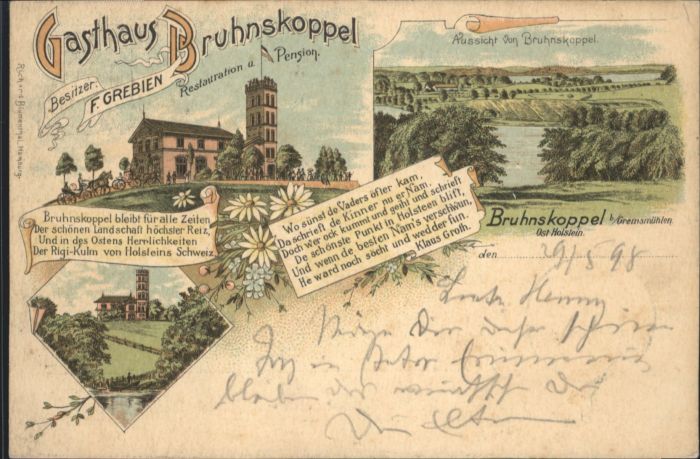 Gasthaus Bruhnskoppel
Besitzer:
F. GREBIEN
Restauration u. Pension.
Aussicht von Bruhnskoppel.
Richard Blumenthal, Hamburg.
Bruhnskoppel bleibt für alle Zeiten
Der schönen Landschaft höchster Reiz,
Und in des Ostens Herrlichkeiten
Der Rigi-Kulm von Holsteins Schweiz
Wo sünst de Vaders öfter kam,
Da schrieft de Kinner nu er Nam.
Doch wer ock kummt und geiht und schrieft
De schönste Punkt in Holsteen blift,
Und wenn de besten Nam's verschwun,
He ward noch söcht und wedder fun.
Klaus Groth.
Bruhnskoppel b/Gremsmühlen.
Ost Holstein.
den 29/5 98
bleiben das wünscht